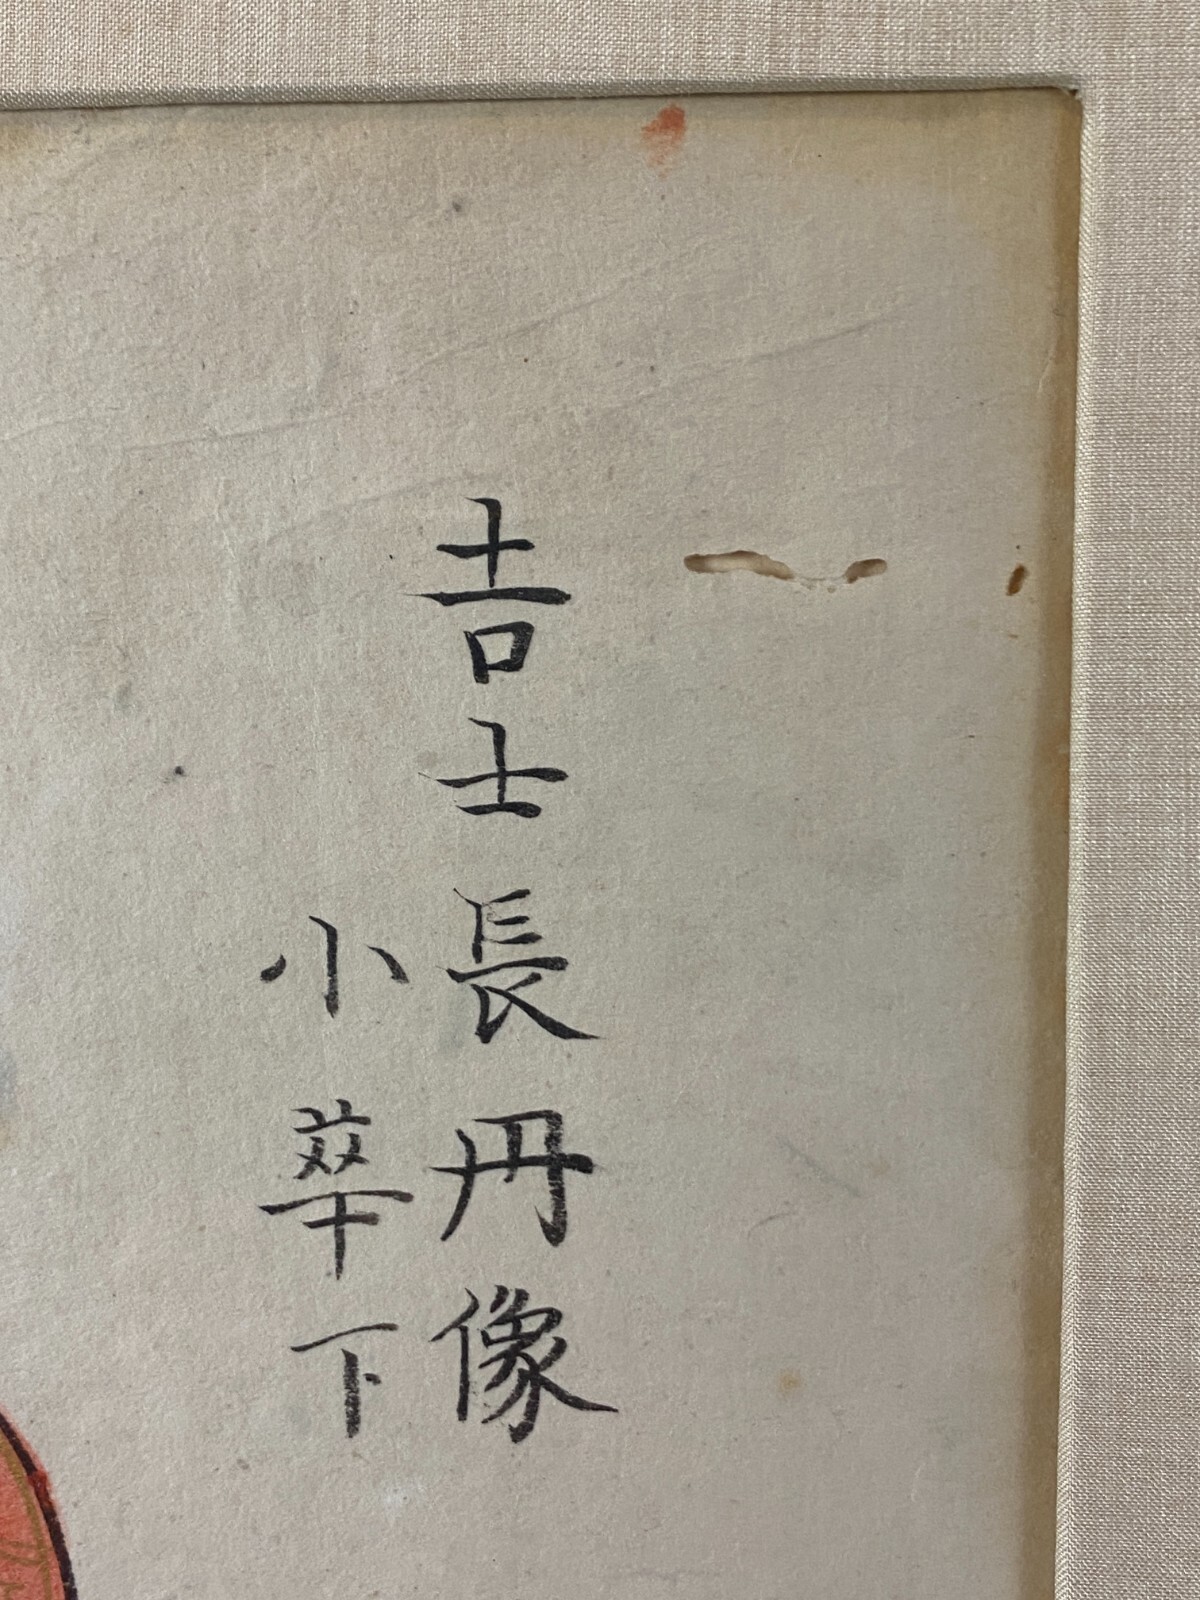 吉士長丹像
小華下